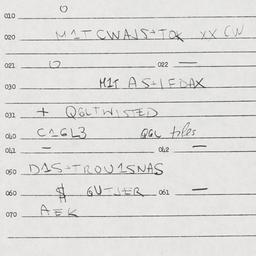 010 O
020 M1TCWAJS+TOK XX CW
021 O 022 —
030 M1T AS+IFDAX
031 + QGLTWISTED
040 C1GL3 QGL files
041 — 042 —
050 D1S+TROU1SNAS
060 $ GUTJER 061 —
070 AEK